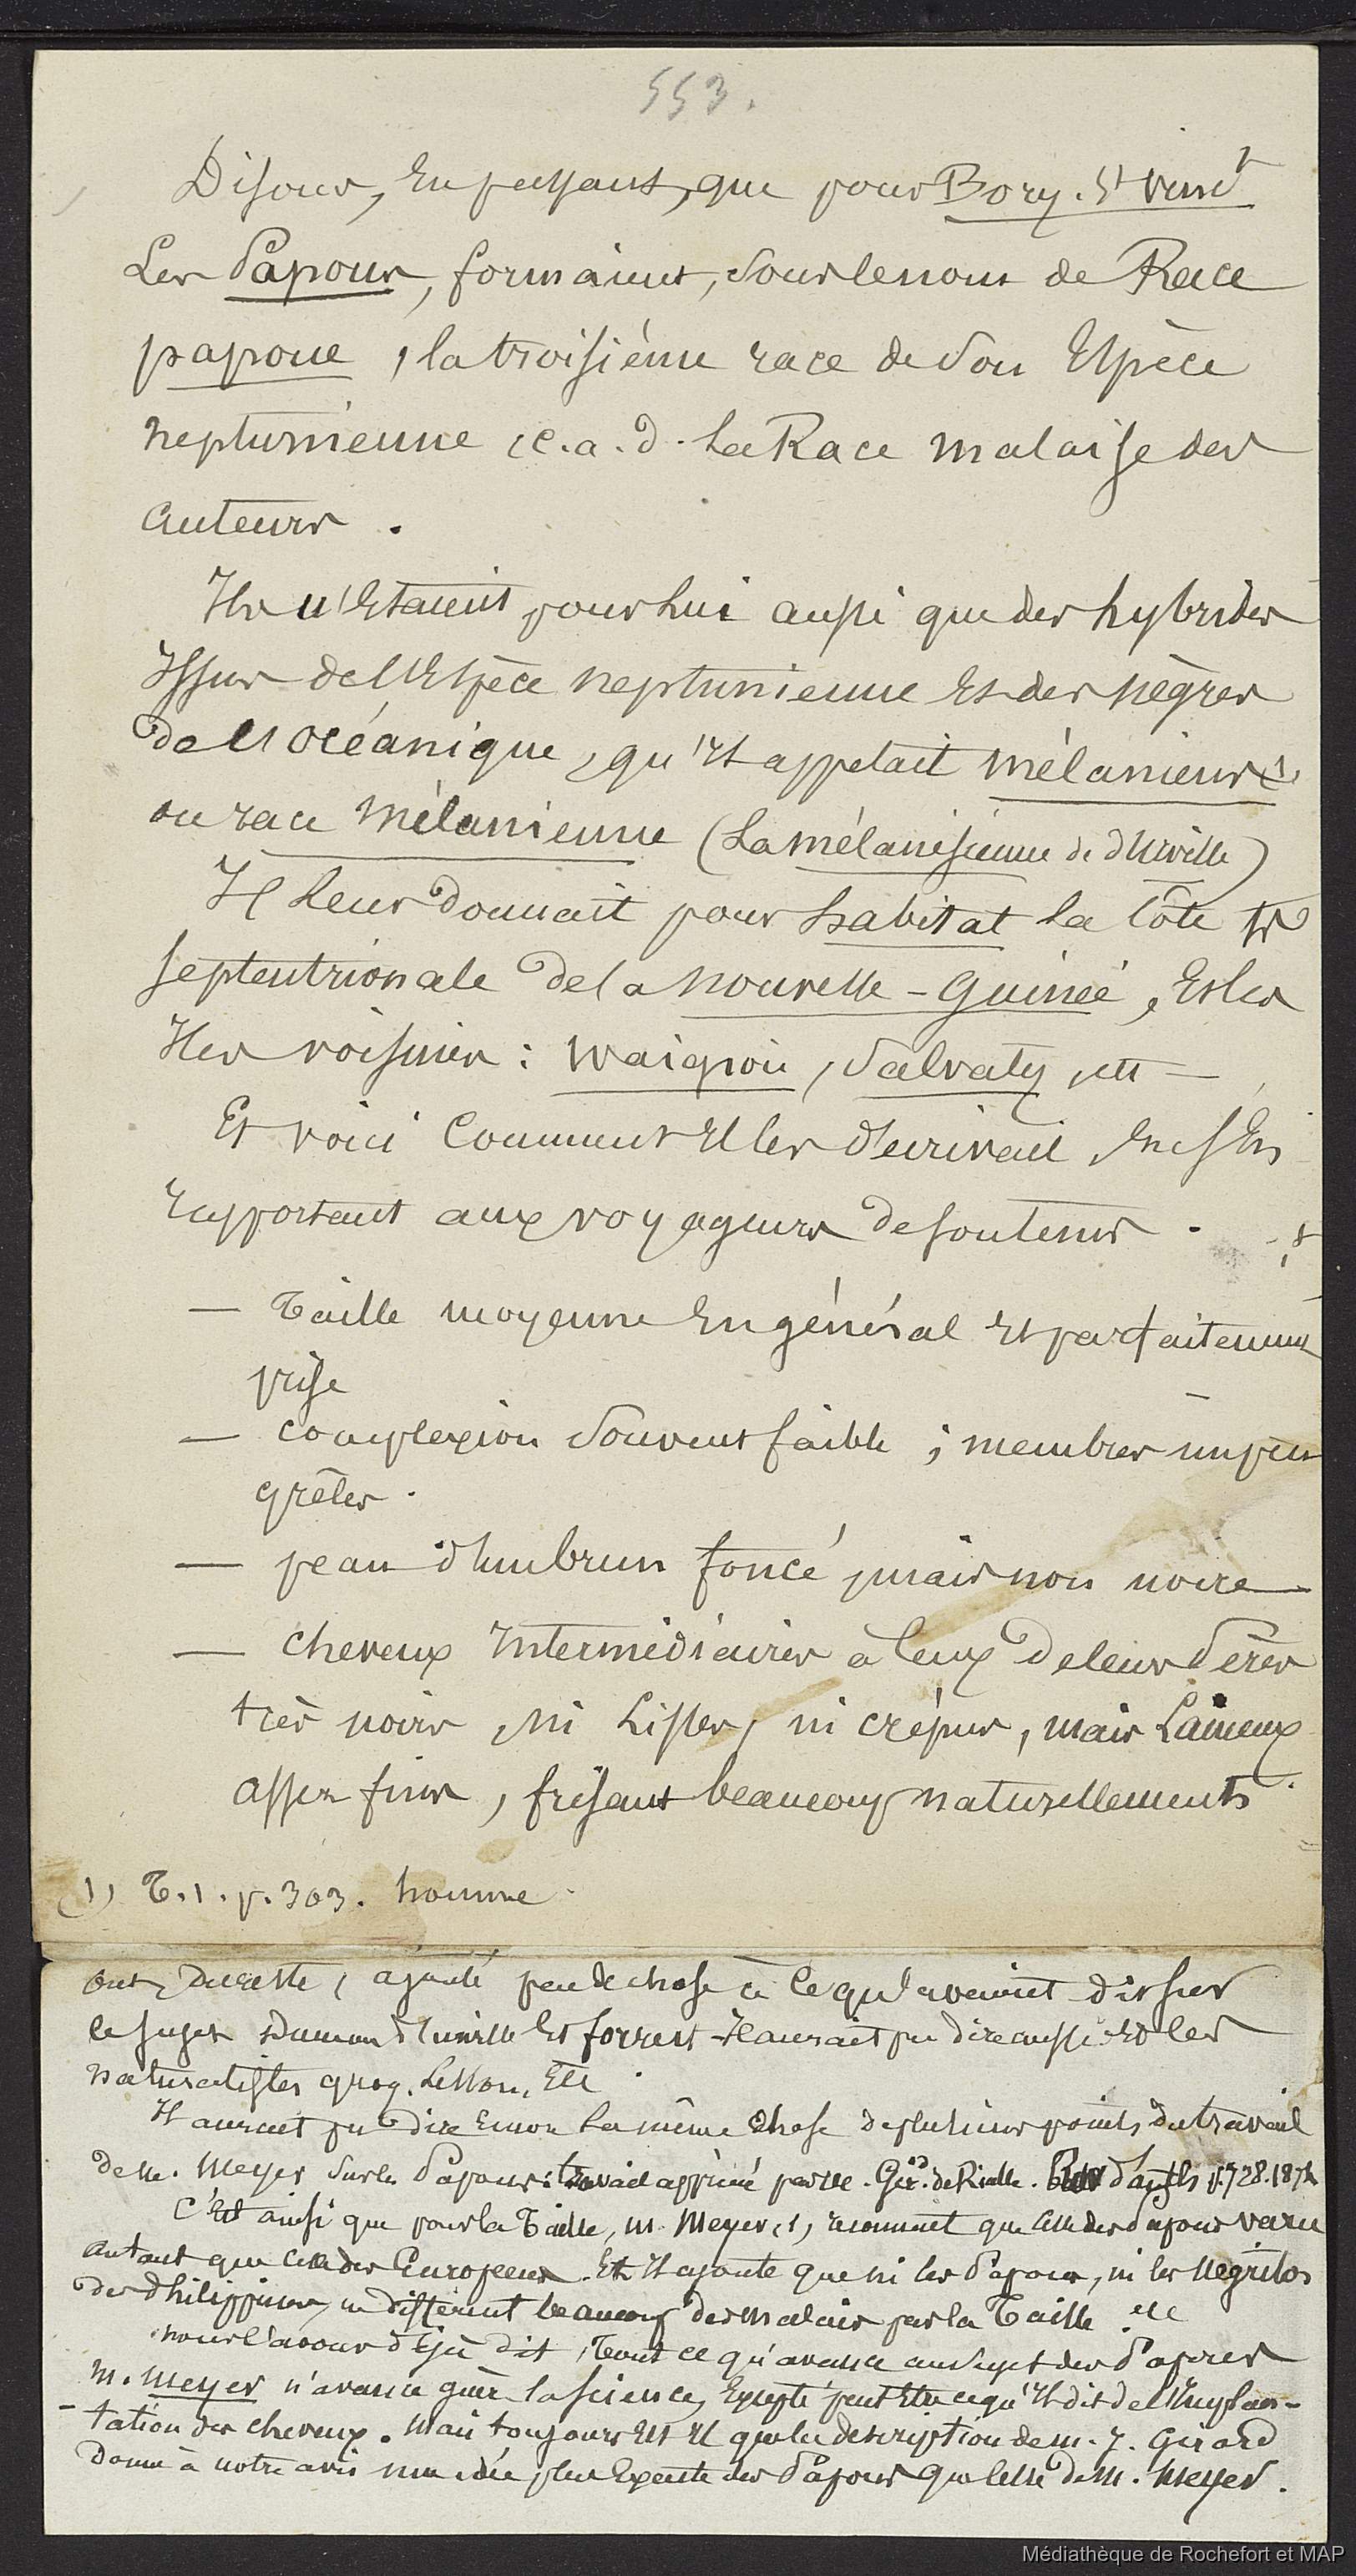 553.
Disons, en passant, que pour Bory. St Vinct
Les Papous, formaient, sous le nom de Race
papoue, la troisième race de son Espèce
neptunienne, c.a.d. La Race malaise des
auteurs.
Ils n'Etaient pour Lui aussi que des hybrides
Issus de l'Espèce neptunienne Et des nègres
de l'océanique, qu'Il appelait mélaniens (1)
ou race mélanienne (La mélanésienne de d'Urville)
Il Leur donnait pour habitat La Côte
septentrionale de la nouvelle-Guinée, Et les
Iles voisines: Waigiou, Salvaty, etc —
Et voici Comment Il les décrivait, En s'En
rapportant aux voyageurs de son tems.
— Taille moyenne En général Et parfaitement
prise
— complexion souvent faible; membres un peu
grêles.
— peau d'un brun foncé, mais non noire —
— cheveux Intermédiaires à Ceux de leurs Pères
très noirs, ni Lisses, ni crépus, mais Laineux
assez fins, frisant beaucoup naturellement.
(1) T.1.p.303. homme.
ont, Du reste, ajouté peu de chose à Ce qu'avaient dit sur
Ce sujet Dumon d'Urville Et forrest. Il aurait pu dire aussi Et les
naturalistes Quoy, Lesson, Etc.
Il aurait pu Dire Encore La même Chose de plusieurs points du travail
de M. Meyer sur les Papous: travail apprécié par M. Gird. de Rialle. Rev d'anth p.728.1874
C'Est ainsi que pour la Taille, M. Meyer, (1) reconnait que Celle des Papous varie
autant que Celle des Européens. Et Il ajoute que ni les Papous, ni les Negritos
des Philippines, ne diffèrent beaucoup des Malais par la Taille, etc
nous l'avons déjà dit, Tout ce qu'avance au sujet des Papous
M. Meyer n'avance guère la science, Excepté peut Etre ce qu'Il dit de l'Implan-
-tation des cheveux. Mais toujours Est Il que la description de M. J. Girard
donne à notre avis une idée plus Exacte des Papous que Celle de M. Meyer.
Médiathèque de Rochefort et MAP